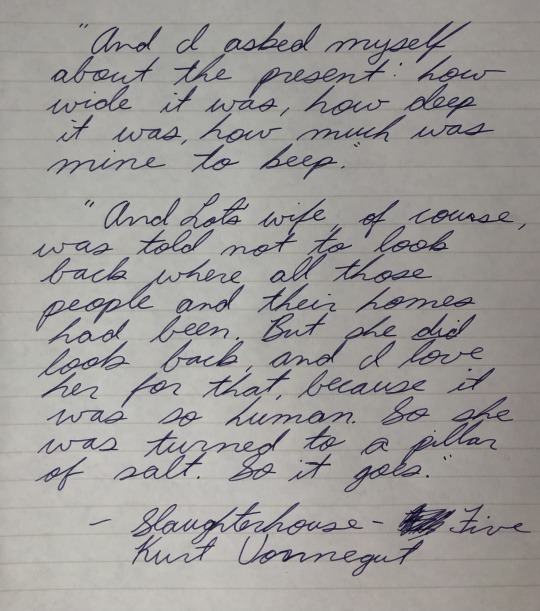 "And I asked myself
about the present: how
wide it was, how deep
it was, how much was
mine to keep."
"And Lot's wife, of course,
was told not to look
back where all those
people and their homes
had been. But she did
look back, and I love
her for that, because it
was so human. So she
was turned to a pillar
of salt. So it goes."
- Slaughterhouse - Five
Kurt Vonnegut